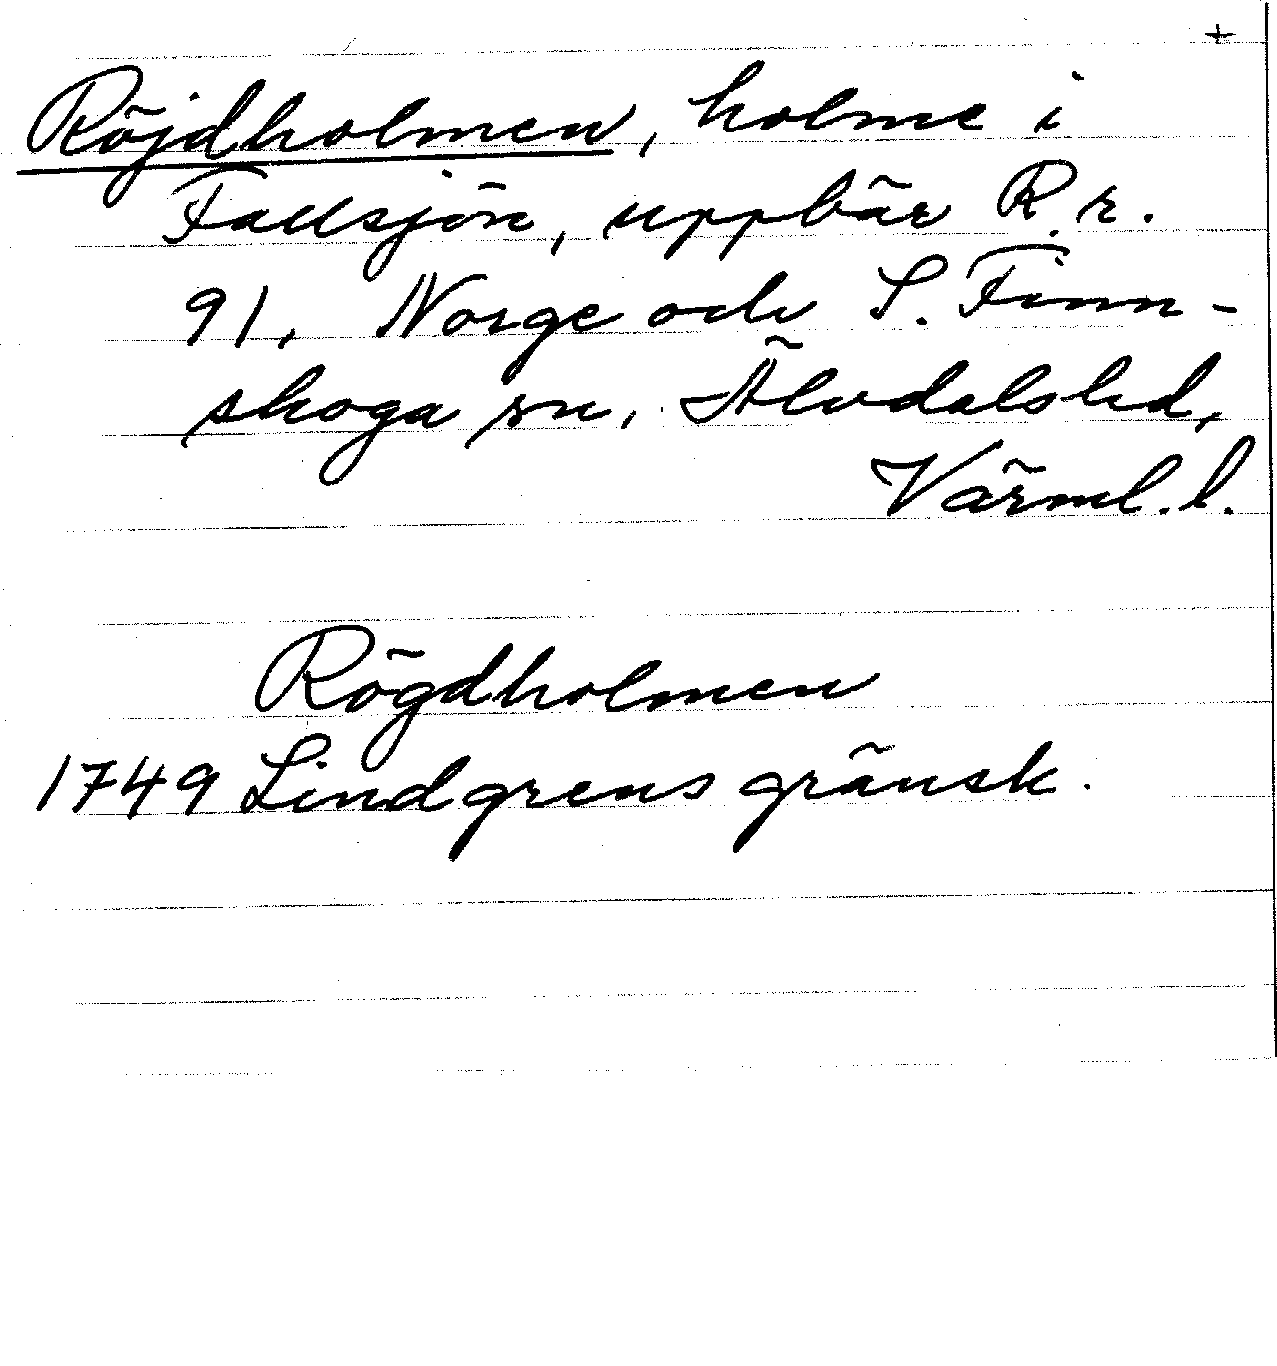 +
Röjdholmen, holme i
Fallsjön, uppbär R. r.
91, Norge och S. Finn-
skoga sn, Älvdals hd,
Värml. l.
Rögdholmen
1749 Lindgrens gränsk.